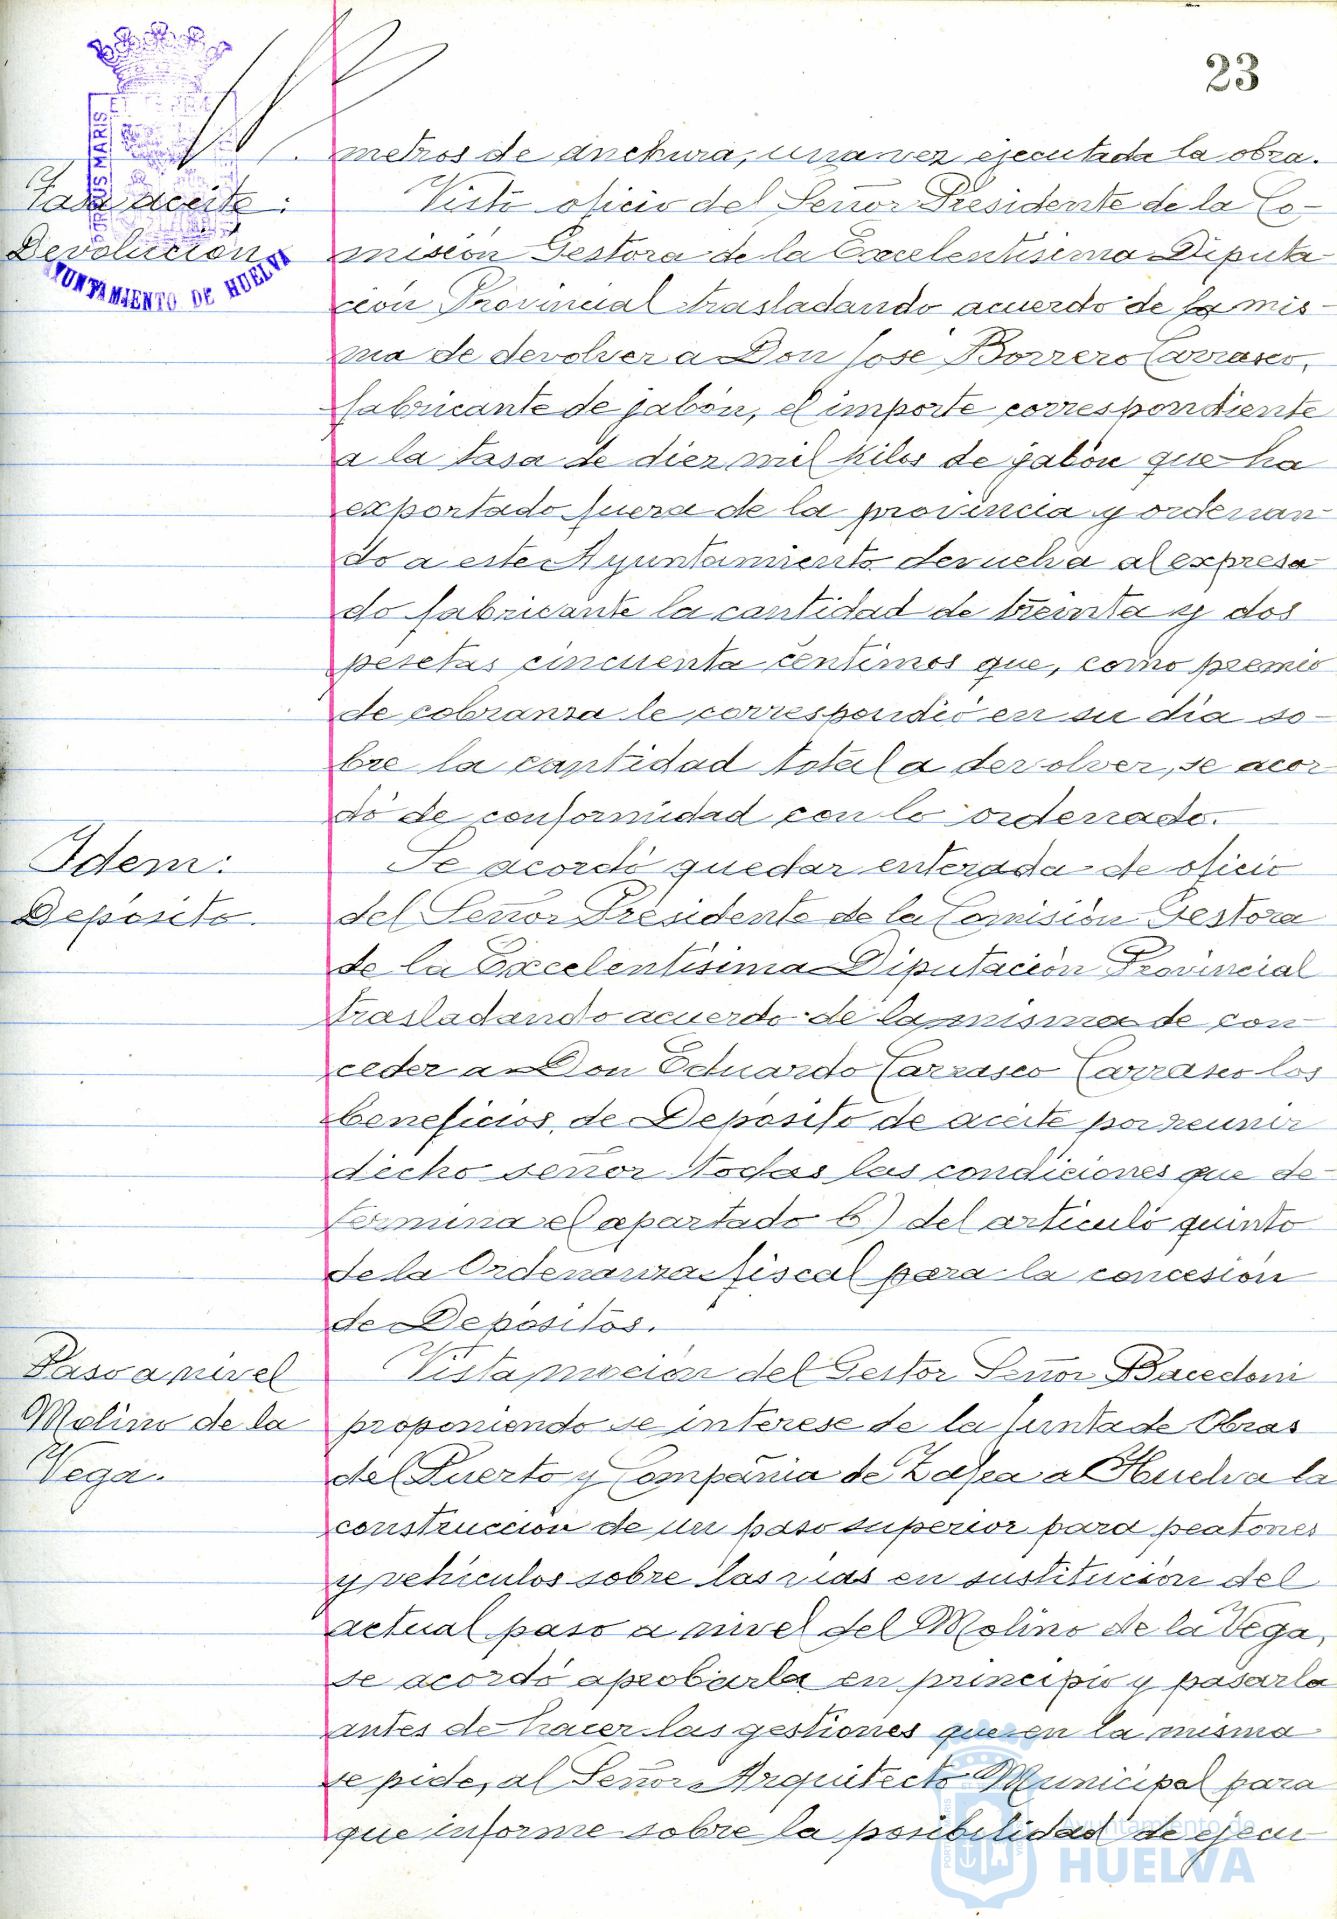 23
PORTUS MARIS ET TERRÆ
AYUNTAMIENTO DE HUELVA
metros de anchura, una vez ejecutada la obra.
Tasa aceite:
Devolución.
Visto oficio del Señor Presidente de la Co-
misión Gestora de la Excelentísima Diputa-
ción Provincial trasladando acuerdo de la mis-
ma de devolver a Don José Borrero Carrasco,
fabricante de jabón, el importe correspondiente
a la tasa de diez mil kilos de jabón que ha
exportado fuera de la provincia y ordenan-
do a este Ayuntamiento devuelva al expresa-
do fabricante la cantidad de treinta y dos
pesetas cincuenta centimos que, como premio
de cobranza le correspondió en su día so-
bre la cantidad total a devolver, se acor-
dó de conformidad con lo ordenado.
Idem:
Depósito.
Se acordó quedar enterada de oficio
del Señor Presidente de la Comisión Gestora
de la Excelentísima Diputación Provincial
trasladando acuerdo de la misma de con-
ceder a Don Eduardo Carrasco Carrasco los
beneficios de Depósito de aceite por reunir
dicho señor todas las condiciones que de-
termina el apartado b) del artículo quinto
de la Ordenanza fiscal para la concesión
de Depósitos.
Paso a nivel
Molino de la
Vega.
Vista moción del Gestor Señor Bacedoni
proponiendo se interese de la Junta de Obras
del Puerto y Compañia de Zafra a Huelva la
construcción de un paso superior para peatones
y vehículos sobre las vías en sustitución del
actual paso a nivel del Molino de la Vega,
se acordó aprobarla en principio y pasarla
antes de hacer las gestiones que en la misma
se pide, al Señor Arquitecto Municipal para
que informe sobre la posibilidad de ejecu-
Ayuntamiento de
HUELVA